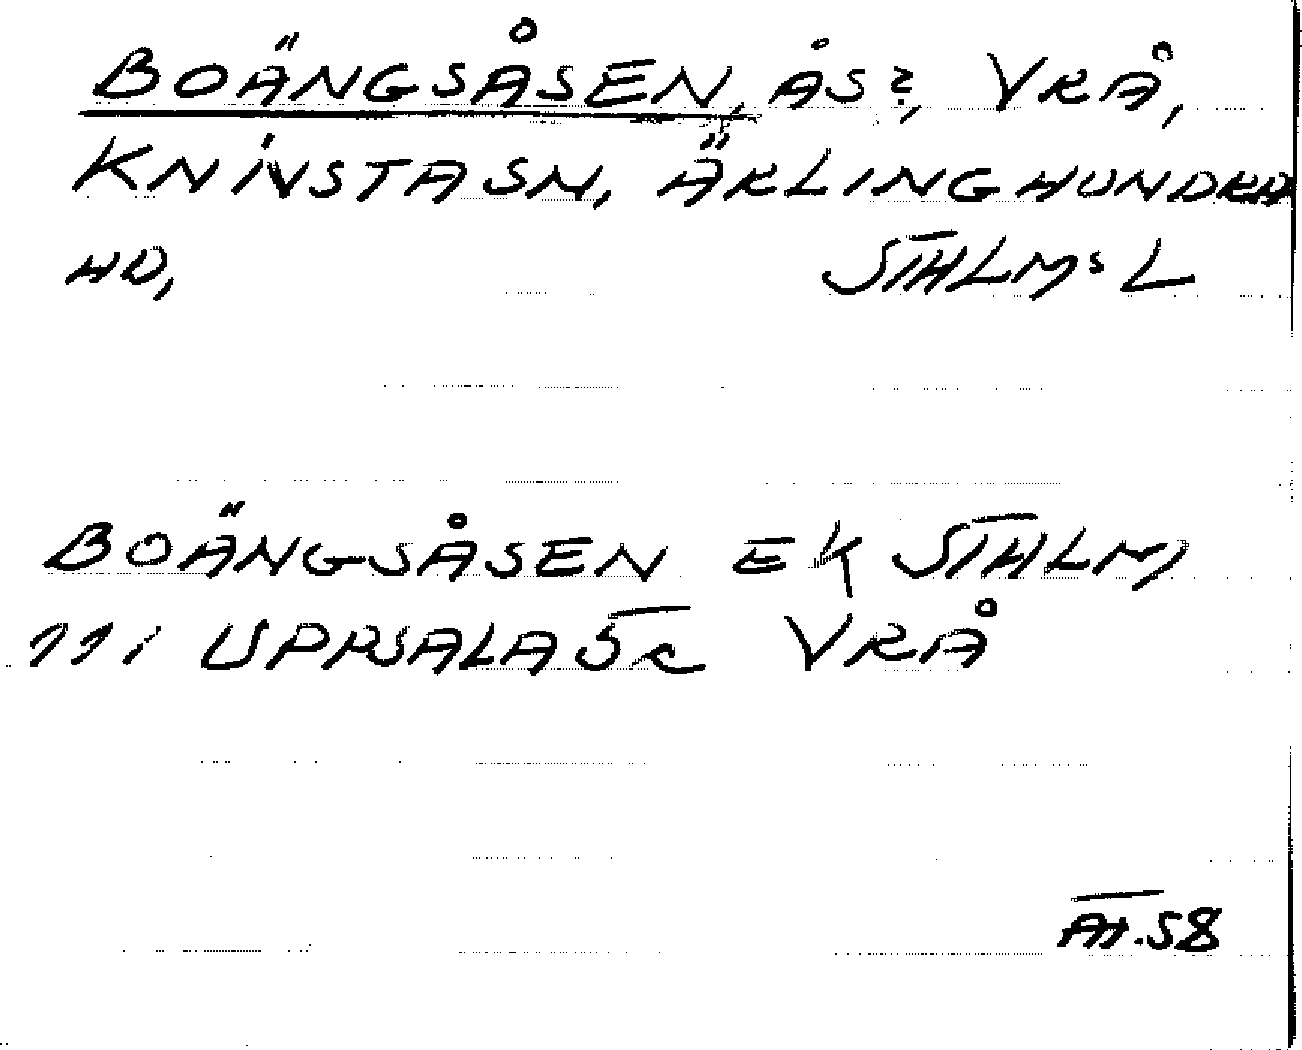 BOÄNGSÅSEN, ÅS?, VRÅ,
KNIVSTA SN, ÄRLINGHUNDRA
HD, STHLMS L
BOÄNGSÅSEN EK STHLM,
11i UPPSALA SR VRÅ
AT.58